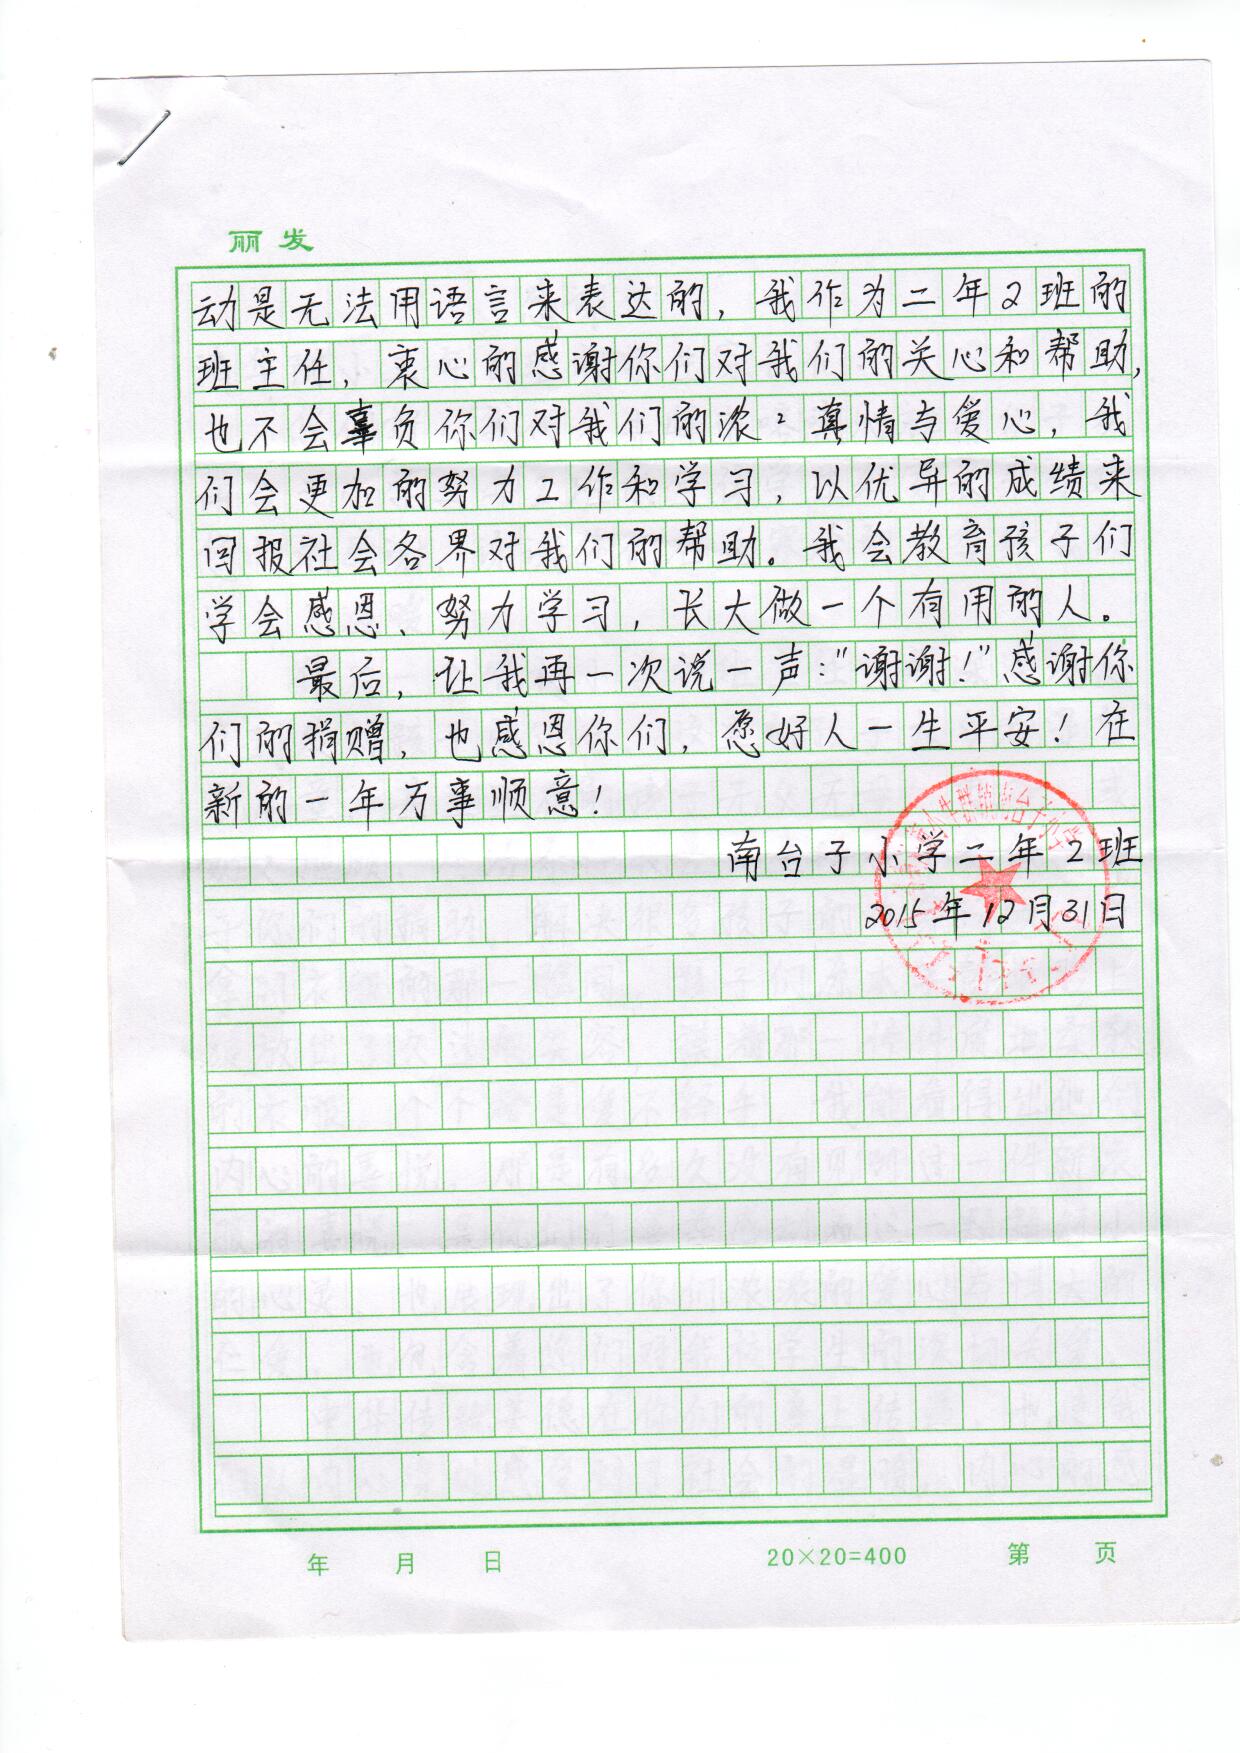 丽发
动是无法用语言来表达的，我作为二年2班的
班主任，衷心的感谢你们对我们的关心和帮助，
也不会辜负你们对我们的浓〻真情与爱心，我
们会更加的努力工作和学习，以优异的成绩来
回报社会各界对我们的帮助。我会教育孩子们
学会感恩、努力学习，长大做一个有用的人。
最后，让我再一次说一声：“谢谢！”感谢你
们的捐赠，也感恩你们，愿好人一生平安！在
新的一年万事顺意！
南台子小学二年2班
2015年12月31日
年 月 日 20×20=400 第 页